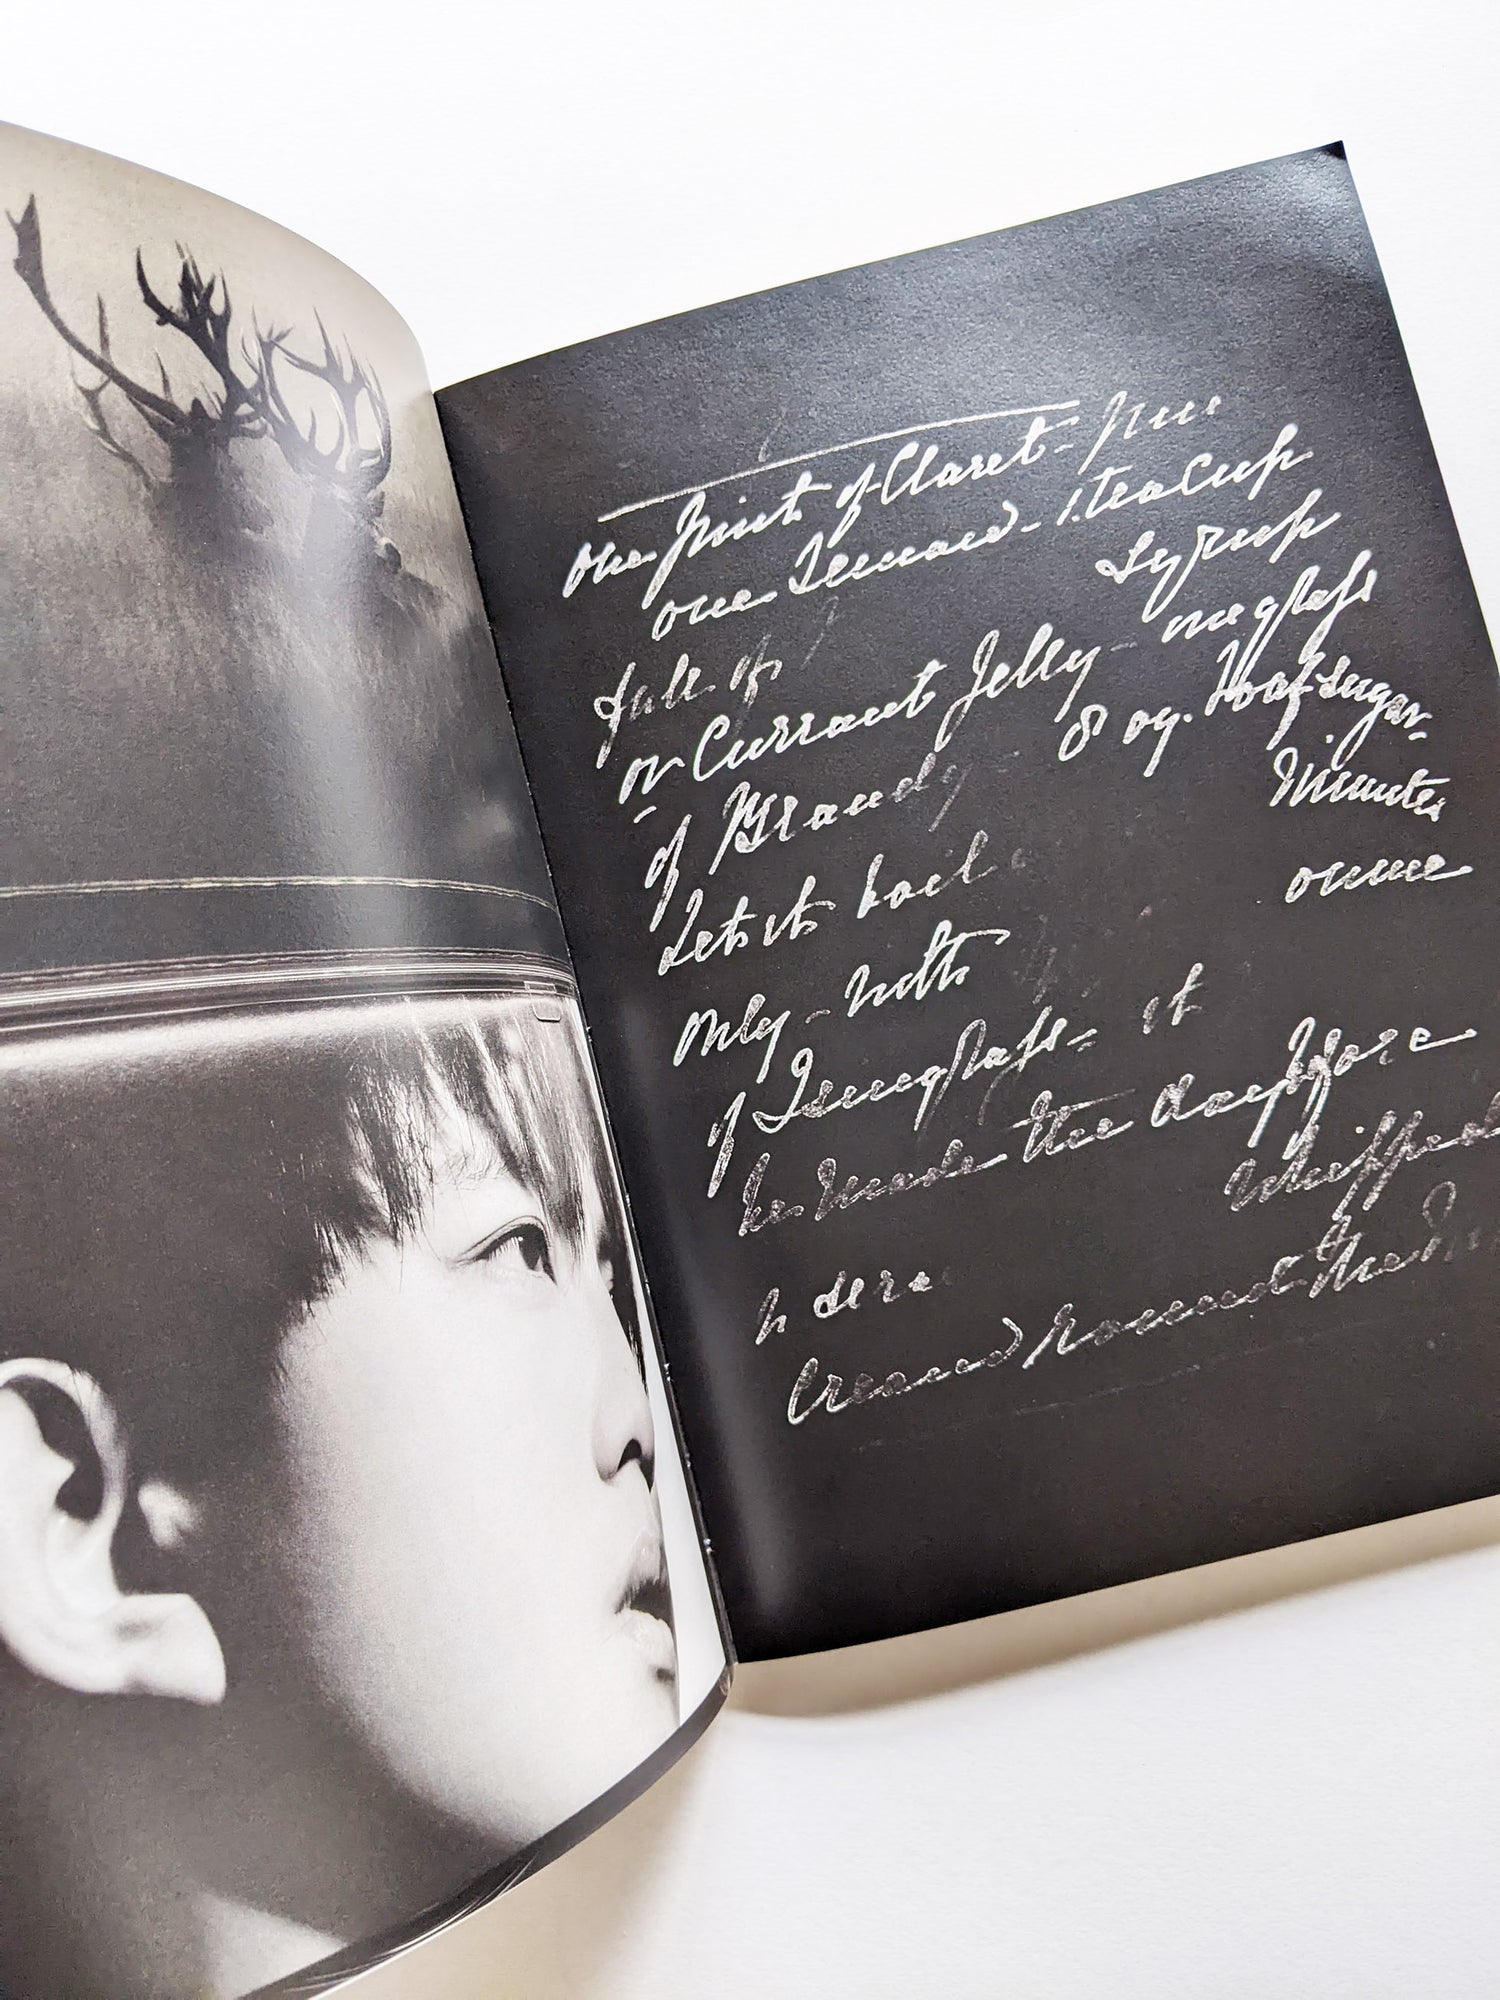 one Pint of Claret - Juice
one Lemon - 1. teacup
full of syrup
or Currant Jelly - one glass
of Brandy - 8 oz. Loaf Sugar -
Let it boil Minutes
only - with ounce
of Isinglass - it
be made the day before
Whipped
Cream round the